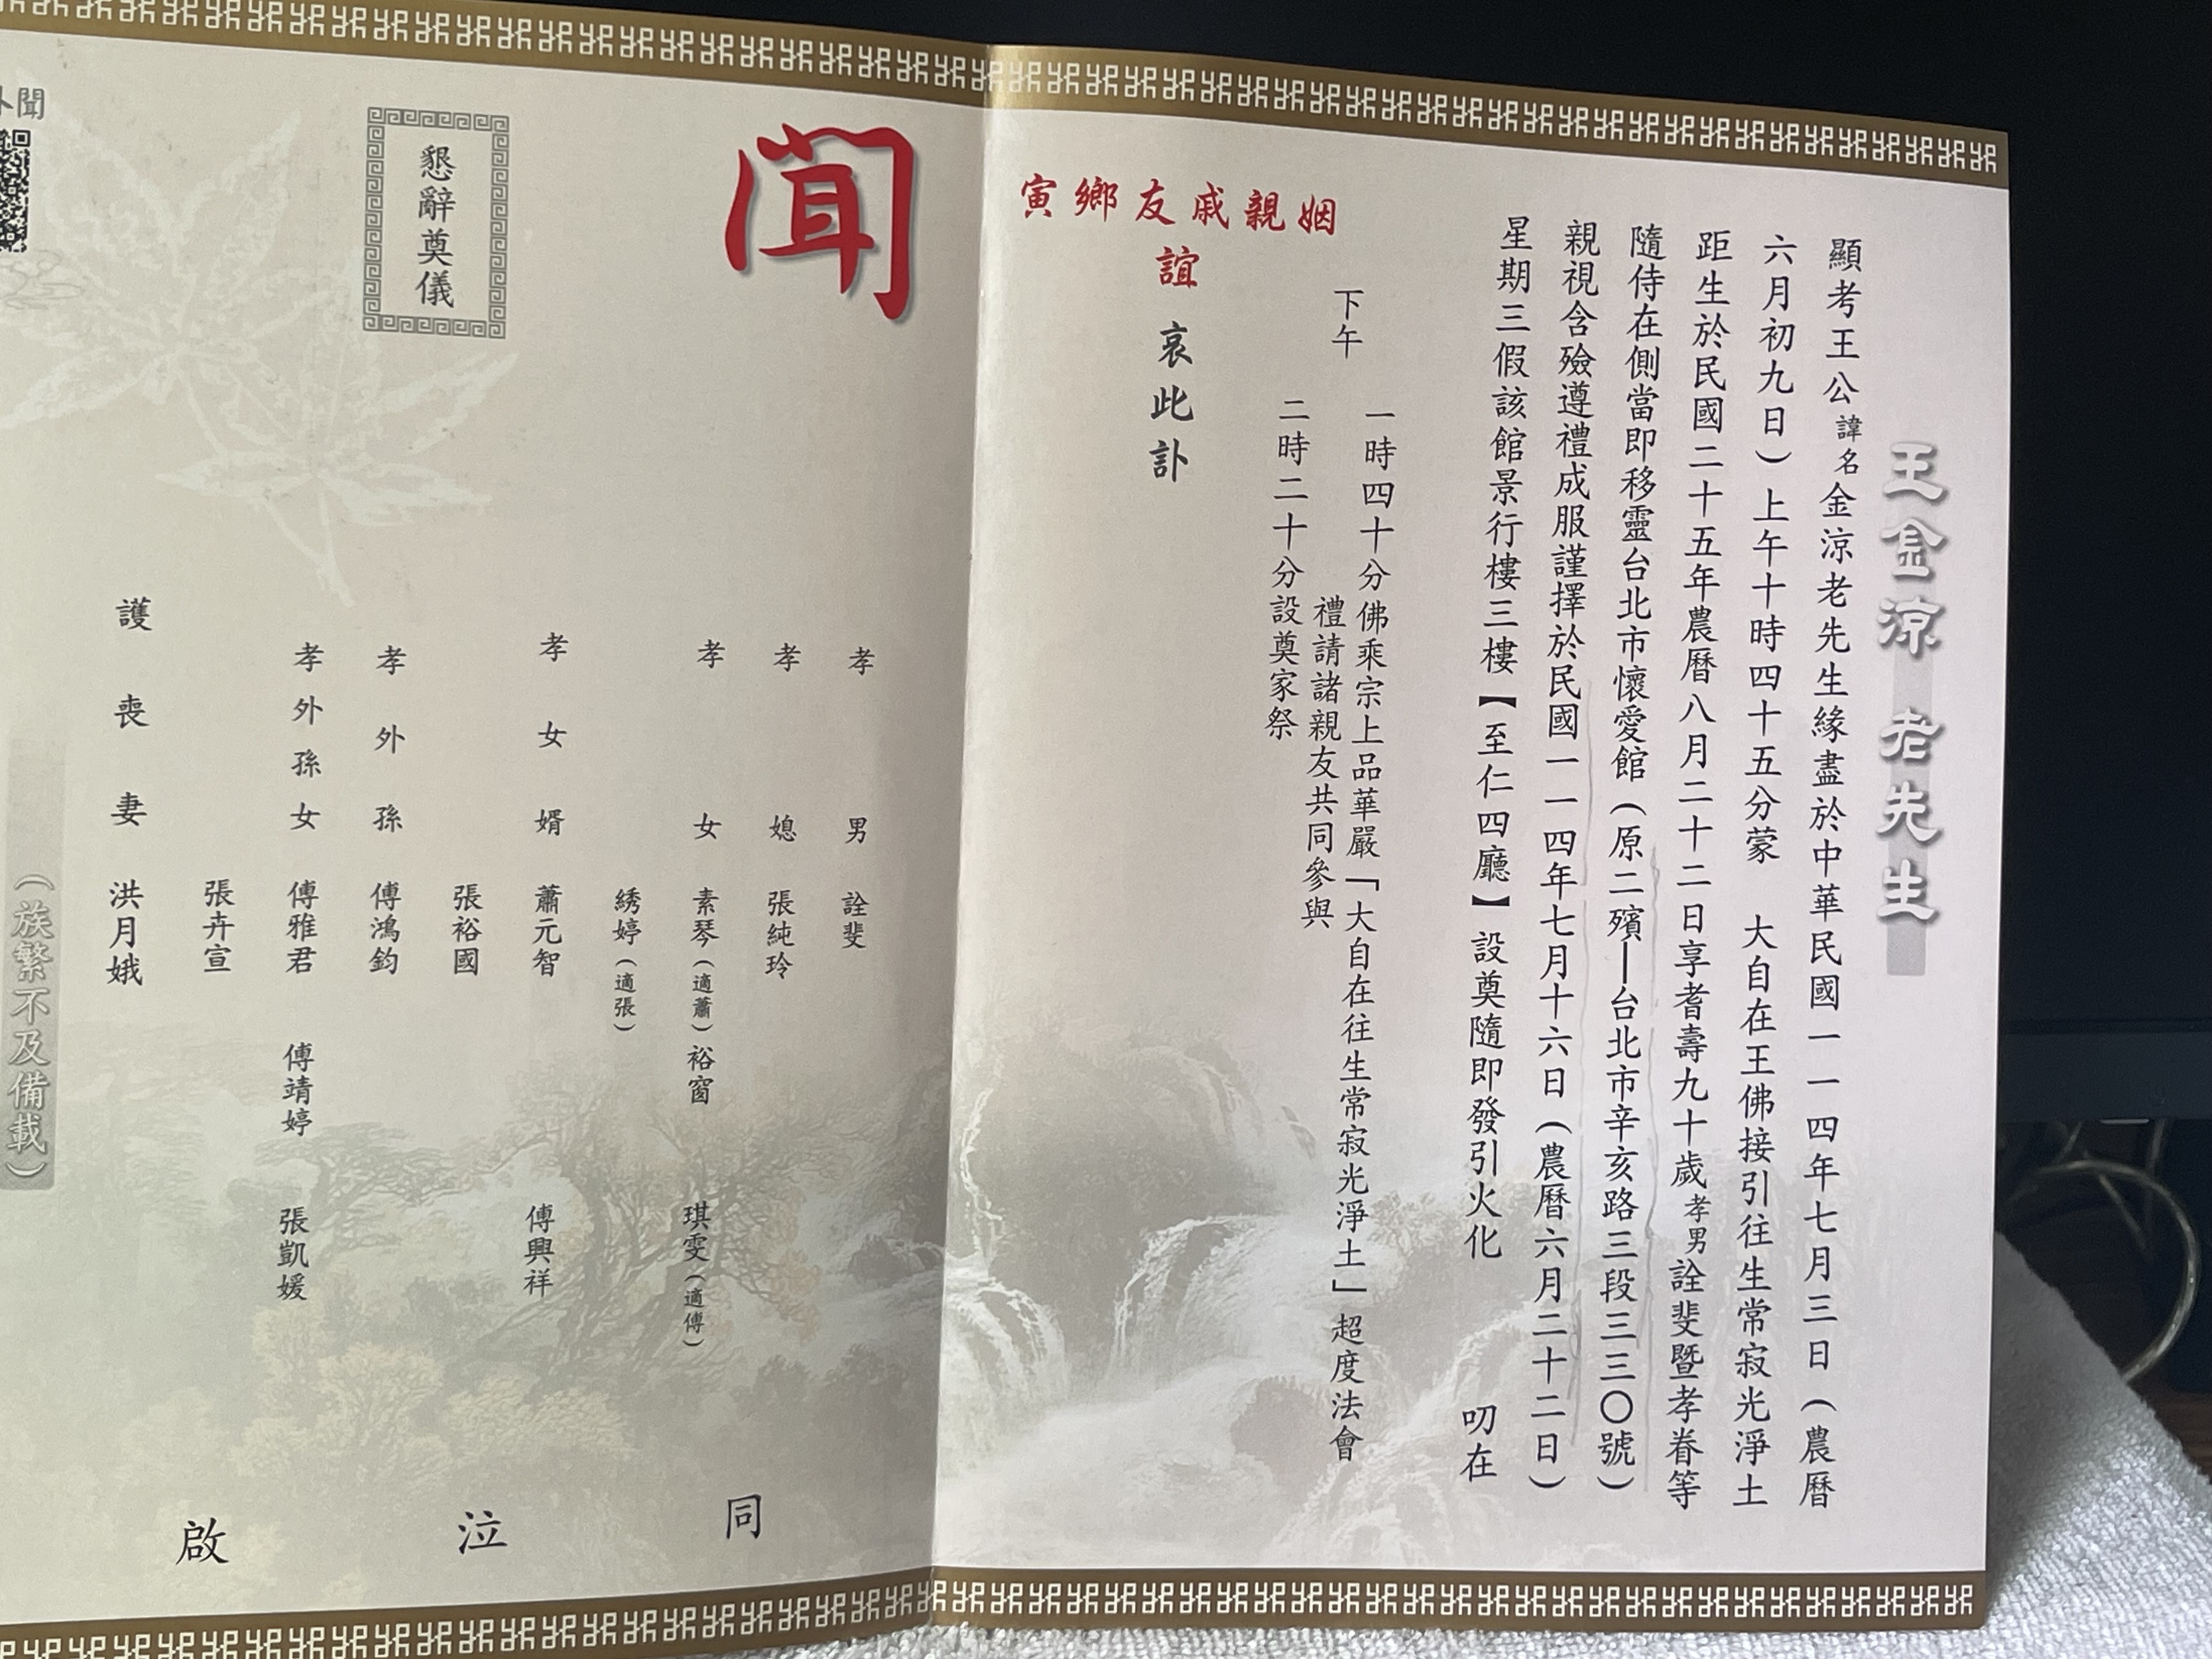 王金涼 老先生
顯考王公諱名金涼老先生緣盡於中華民國一一四年七月三日（農曆
六月初九日）上午十時四十五分蒙 大自在王佛接引往生常寂光淨土
距生於民國二十五年農曆八月二十二日享耆壽九十歲孝男詮斐暨孝眷等
隨侍在側當即移靈台北市懷愛館（原二殯—台北市辛亥路三段三三〇號）
親視含殮遵禮成服謹擇於民國一一四年七月十六日（農曆六月二十二日）
星期三假該館景行樓三樓【至仁四廳】設奠隨即發引火化 叨在
下午
一時四十分佛乘宗上品華嚴「大自在往生常寂光淨土」超度法會
禮請諸親友共同參與
二時二十分設奠家祭
姻親戚友鄉寅
誼 哀此訃
聞
孝男 詮斐
孝媳 張純玲
孝女 素琴（適蕭） 裕窗 琪雯（適傅）
綉婷（適張）
孝女婿 蕭元智 傅興祥
張裕國
孝外孫 傅鴻鈞
孝外孫女 傅雅君 傅靖婷 張凱媛
張卉宣
護喪妻 洪月娥
同泣啟
懇辭奠儀
（族繁不及備載）
訃聞